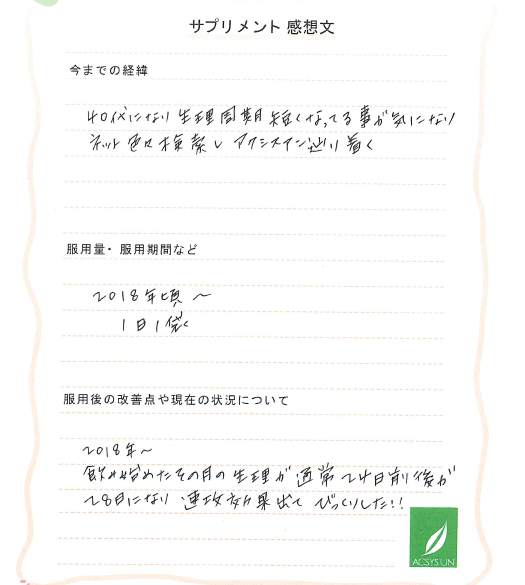 サプリメント 感想文
今までの経緯
40代になり 生理周期短くなってる事が気になり
ネット色々検索し アクシスアン辿り着く
服用量・服用期間など
2018年頃 ～
1日1袋
服用後の改善点や現在の状況について
2018年～
飲み始めたその月の生理が 通常24日前後が
28日になり 速攻効果出て びっくりした!!
ACSYS UN